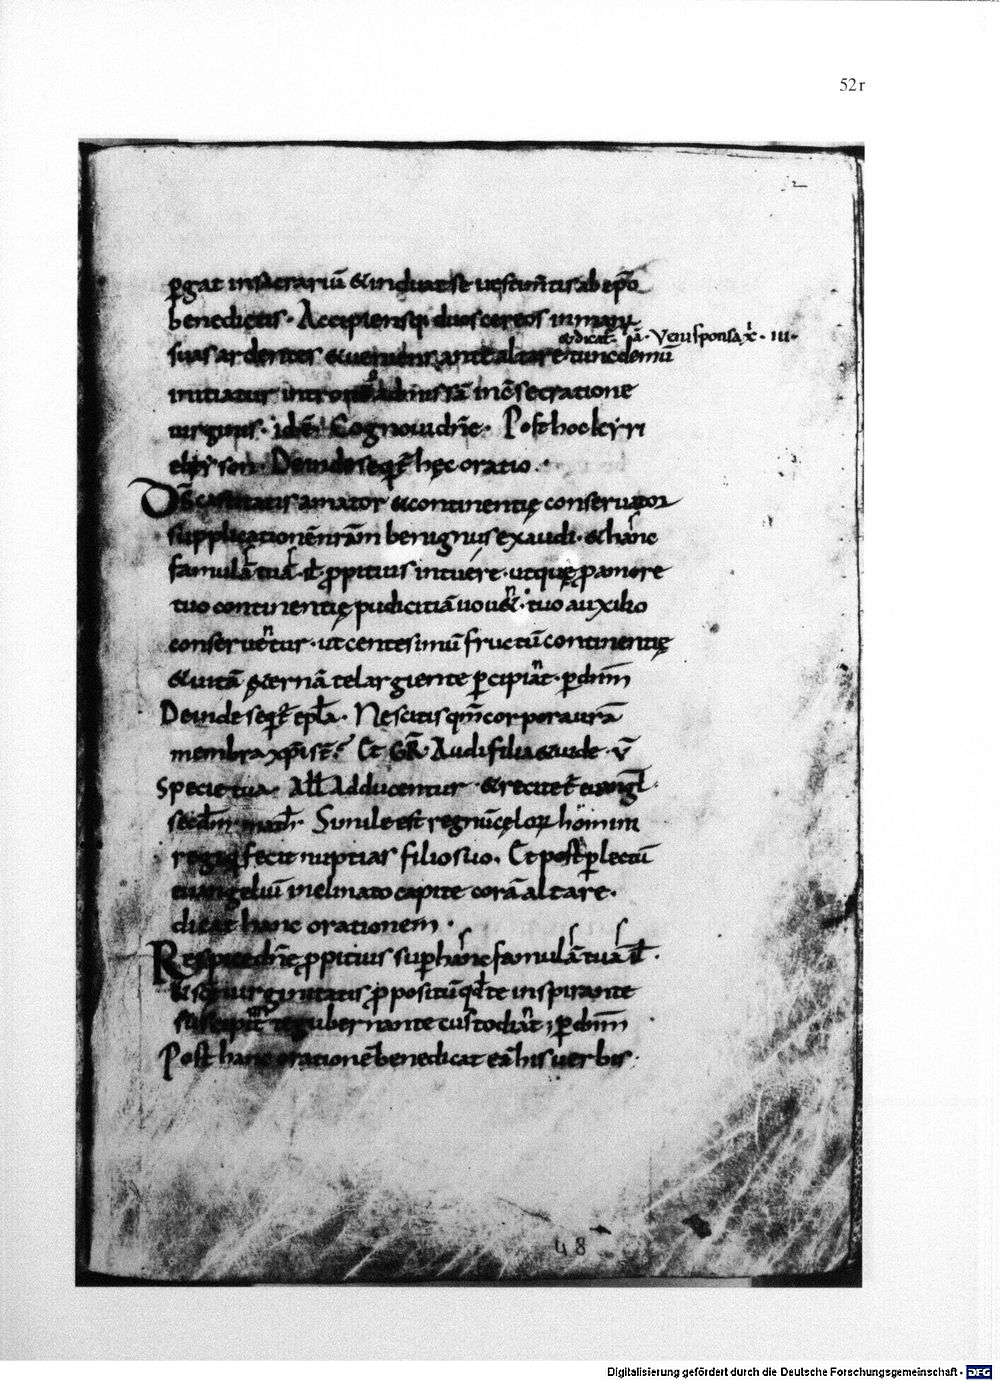 52r
ꝑgat insacrariū &induat se uestim̄tis ab ep̄o
benedictis · Accipiensq; duos cereos in man
&dicat · Veni sponsa x̄ · III ·
suas ardentes &ueniens ante altare tunc demū
initiatur intro admissa in c̄secratione
uirginis · idē Cognoui dn̄e · Post hoc kyrri
eleyson · Deinde seqt̄ hęc oratio ·
D̄s castitatis amator &continentię conseruator
supplicationē nr̄am benignus exaudi · &hanc
famulā tuā · ꝓpitius intuere · ut quę ꝓ amore
tuo continentię pudicitiā uou& · tuo auxilio
conseruetur · ut centesimū fructū continentię
&uitā ęternā te largiente ꝑcipiat · ꝑ dnm̄
Deinde seqt̄ epła · Nescitis qm̄ corpora urā
membra xp̄i st̄ · Et GR̄ · Audi filia &uide · v̄
Specie tua · Aƚƚ Adducentur · &recitet̄ euangƚ ·
secdm̄ math̄ Simile est regnū cęloꝝ homini
regi q̄ fecit nuptias filio suo · Et post ꝑlectū
euangeliū inclinato capite corā altare ·
dicat hanc orationem ·
Respice dn̄e ꝓpitius suꝑ hanc famulā tuā ·
ut scē uirginitatis ꝓpositū qd̄ te inspirante
suscepit te gubernante custodiat · ꝑ dnm̄
Post hanc orationē benedicat eā his uerbis ·
48
Digitalisierung gefördert durch die Deutsche Forschungsgemeinschaft · DFG